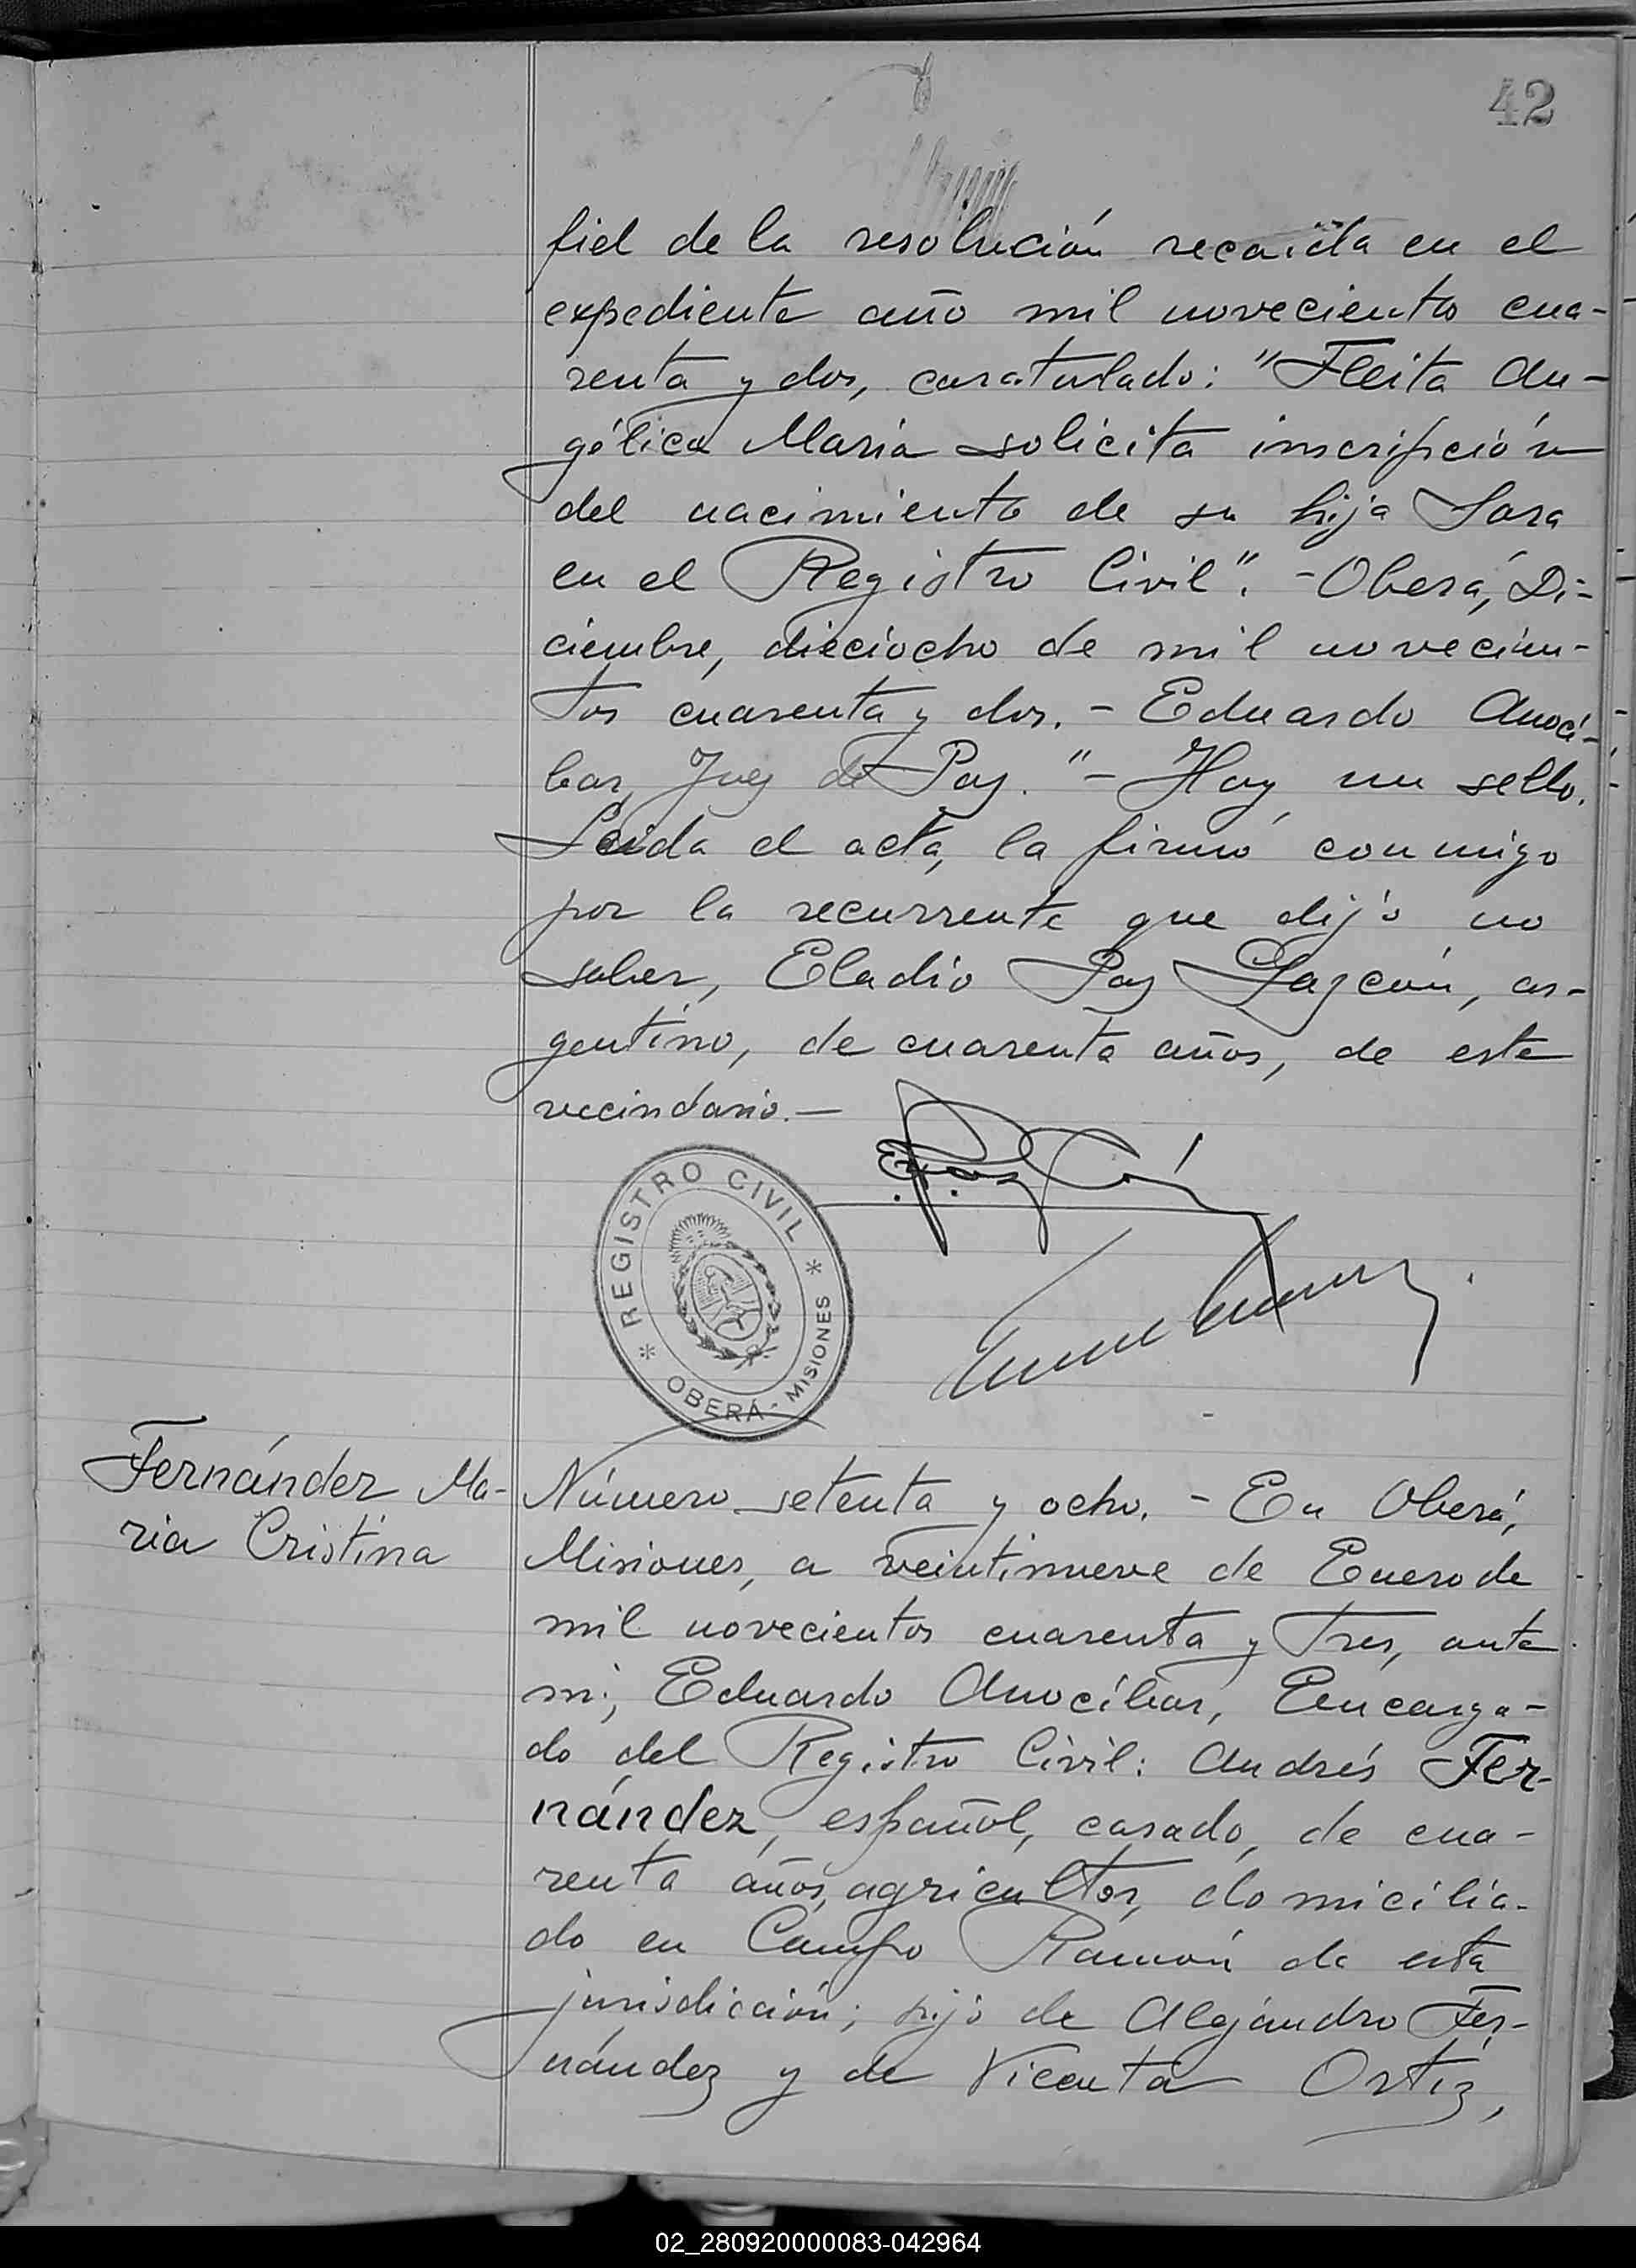 42
fiel de la resolución recaída en el
expediente año mil novecientos cua-
renta y dos, caratulado: "Fleita An-
gélica Maria solicita inscripción
del nacimiento de su hija Sara
en el Registro Civil". - Oberá, Di-
ciembre, dieciocho de mil novecien-
tos cuarenta y dos. - Eduardo Anocí-
bar, Juez de Paz." - Hay un sello.
Leida el acta, la firmó conmigo
por la recurrente que dijo no
saber, Eladio Paz Gazcón, ar-
gentino, de cuarenta años, de este
vecindario. -
* REGISTRO CIVIL *
OBERÁ - MISIONES
Fernández Ma-
ria Cristina
Número setenta y ocho. - En Oberá,
Misiones, a veintinueve de Enero de
mil novecientos cuarenta y tres, ante
mi, Eduardo Anocíbar, Encarga-
do del Registro Civil: Andrés Fer-
nández, español, casado, de cua-
renta años, agricultor, domicilia-
do en Campo Ramón de esta
jurisdicción; hijo de Alejandro Fer-
nández y de Vicenta Ortiz,
02_280920000083-042964